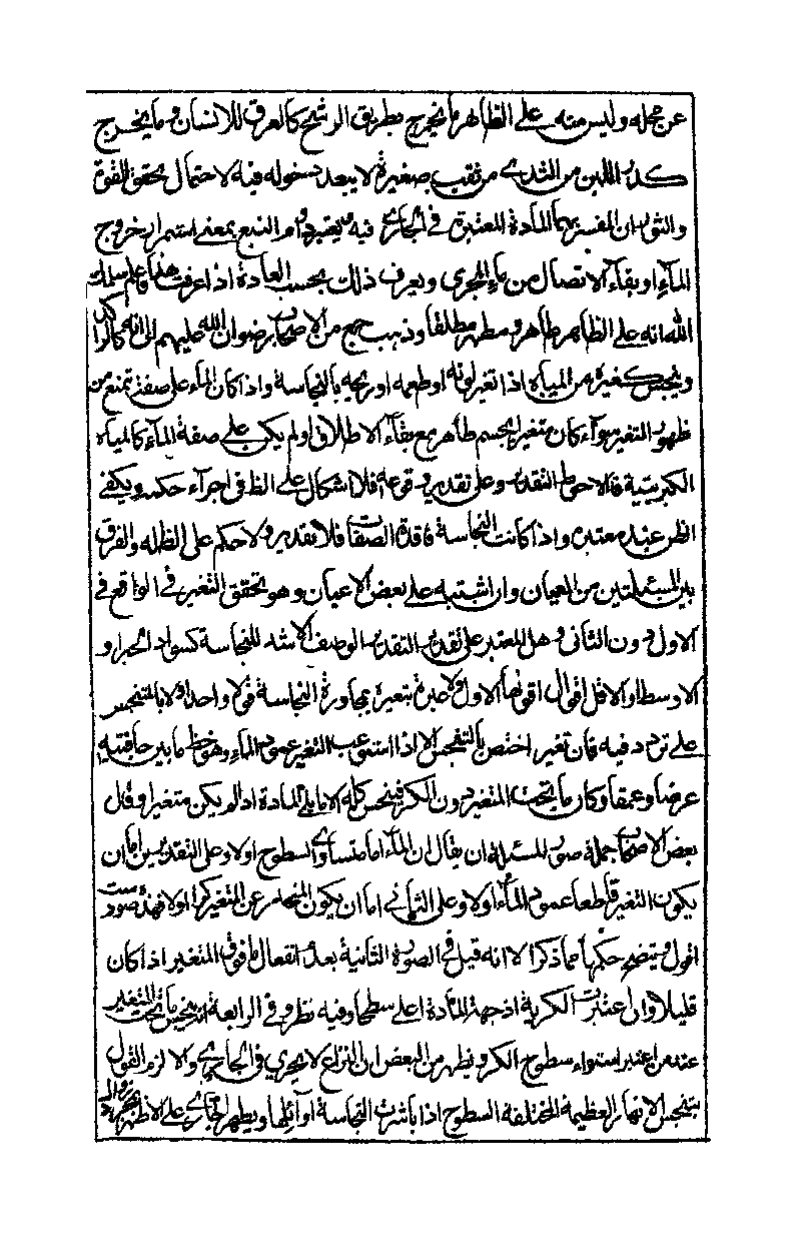 عن محله وليس منه على الظاهر ما يخرج بطريق الرشح كالعرق للانسان وما يخرج
كدر اللبن من الثدي من ثقب صغيرة لا يبعد دخوله فيه لاحتمال تحقق القوة
والثوران المفسر بهما المادة المعتبرة في الجاري فيه ويعتبر دوام النبع بمعنى استمرار خروج
الماء او بقاء الاتصال من ماء المجرى ويعرف ذلك بحسب العادة اذا عرفت هذا فاعلم سلمك
الله انه على الظاهر طاهر ومطهر مطلقا وذهب جمع من الاصحاب رضوان الله عليهم الى انه كالراكد
وينجس كغيره من المياه اذا تغير لونه او طعمه او ريحه بالنجاسة واذا كان الماء على صفة تمنع من
ظهور التغير سواء كان متغيرا بجسم طاهر مع بقاء الاطلاق او لم يكن على صفة الماء كالمياه
الكبريتية فالاحوط التقدير وعلى تقدير وقوعه فلا اشكال على الظ في اجراء حكمه ويكفي
الظن عند معتبره واذا كانت النجاسة فاقدة الصفات فلا تقدير ولا حكم على الظ له والفرق
بين المسئلتين من العيان وان اشتبه على بعض الاعيان وهو تحقق التغير في الواقع في
الاول دون الثاني وهل المعتبر على تقدير التقدير الوصف الاشد للنجاسة كسواد الحبر او
الاوسط او الاقل اقوال اقواها الاول ولا عبرة بتغيره بمجاورة النجاسة قولا واحدا ولا بالمتنجس
على تردد فيه فان تغير اختص بالتنجس الا اذا استوعب التغير عمود الماء وهو خط ما بين حافتيه
عرضا وعمقا وكان ما تحت المتغير دون الكر فينجس كله الا ما يلي المادة اذا لم يكن متغيرا وقال
بعض الاصحاب جملة صور المسئلة ان يقال ان الماء اما متساوي السطوح اولا وعلى التقديرين اما ان
يكون التغير قاطعا عمود الماء اولا وعلى الثاني اما ان يكون المنحدر عن المتغير كرا اولا فهذه صور ست
اقول ويتضح حكمها مما ذكر الا انه قيل في الصورة الثانية بعدم انفعال ما فوق المتغير اذا كان
قليلا وان اعتبرت الكرية اذ جهة المادة اعلى سطحا وفيه نظر وفي الرابعة انه ينجس ما تحت المتغير
عند من اعتبر استواء سطوح الكر ويظهر من البعض ان النزاع لا يجري في الجاري والا لزم القول
بتنجس الانهار العظيمة المختلفة السطوح اذا باشرت النجاسة اوائلها ويطهر الجاري على الاظهر